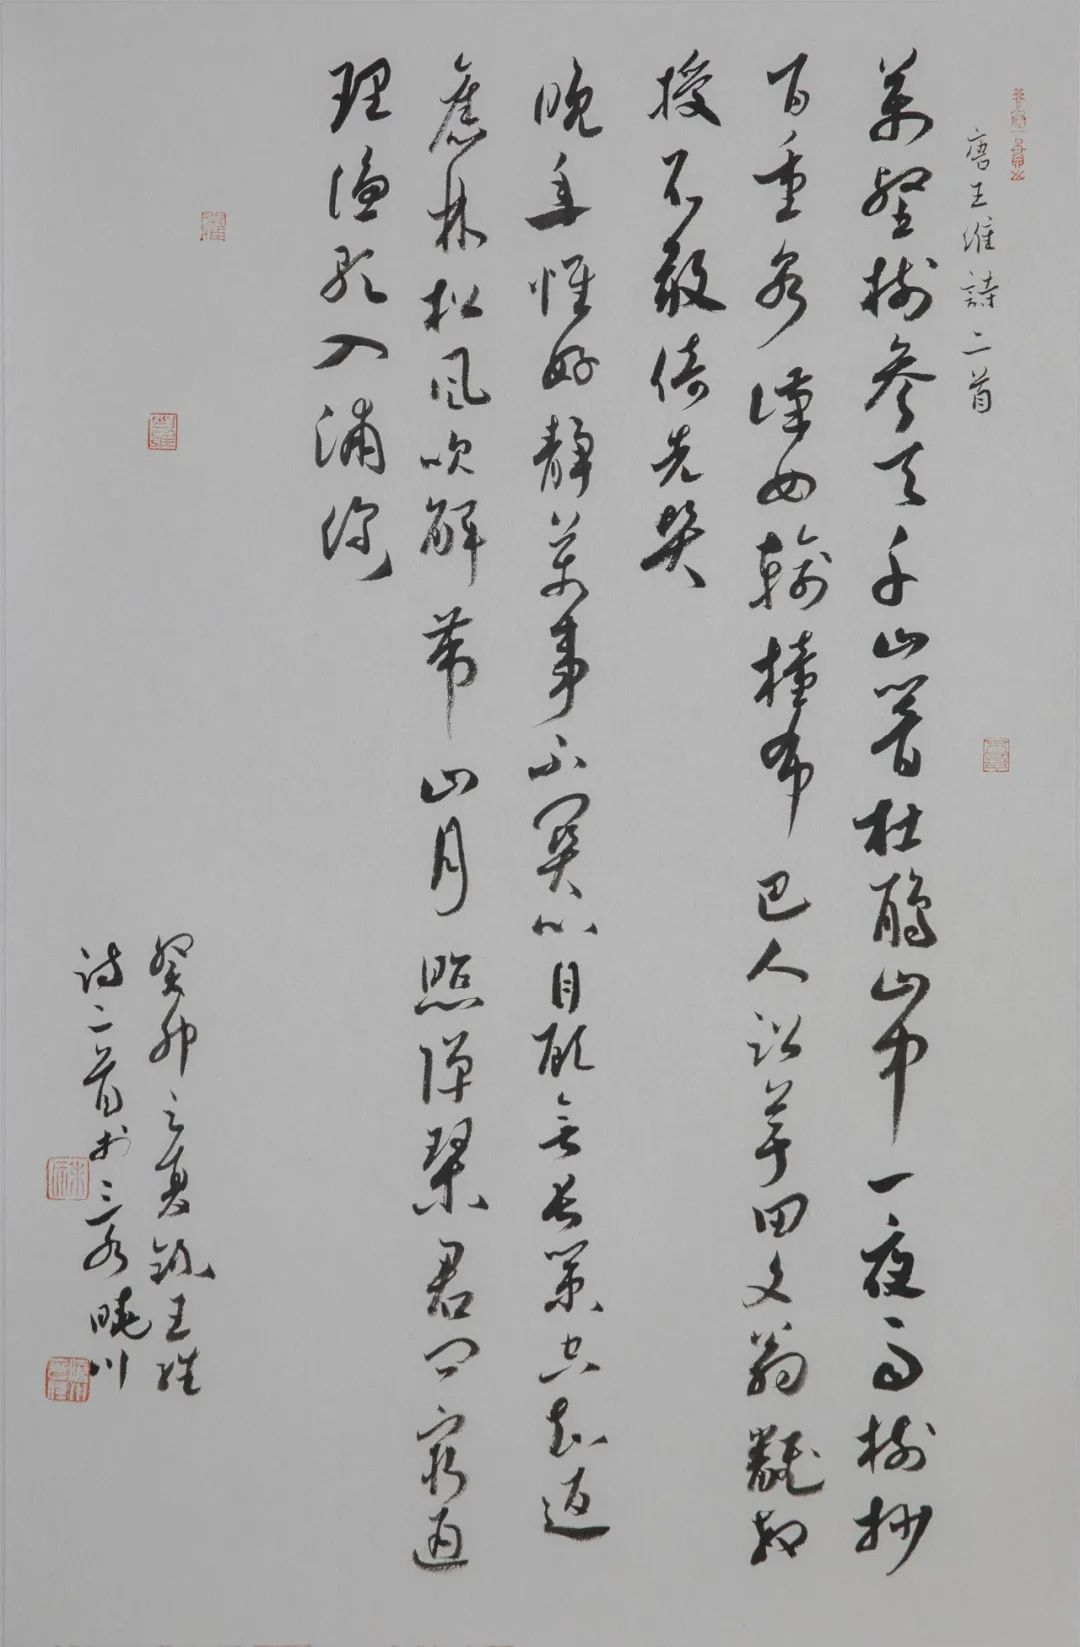 唐王維詩二首
萬壑樹參天千山響杜鵑山中一夜雨樹杪
百重泉漢女輸橦布巴人訟芋田文翁翻教
授不敢倚先賢
晚年惟好靜萬事不關心自顧無長策空知返
舊林松風吹解帶山月照彈琴君問窮通
理漁歌入浦深
癸卯之夏錄王維
詩二首於三曉川